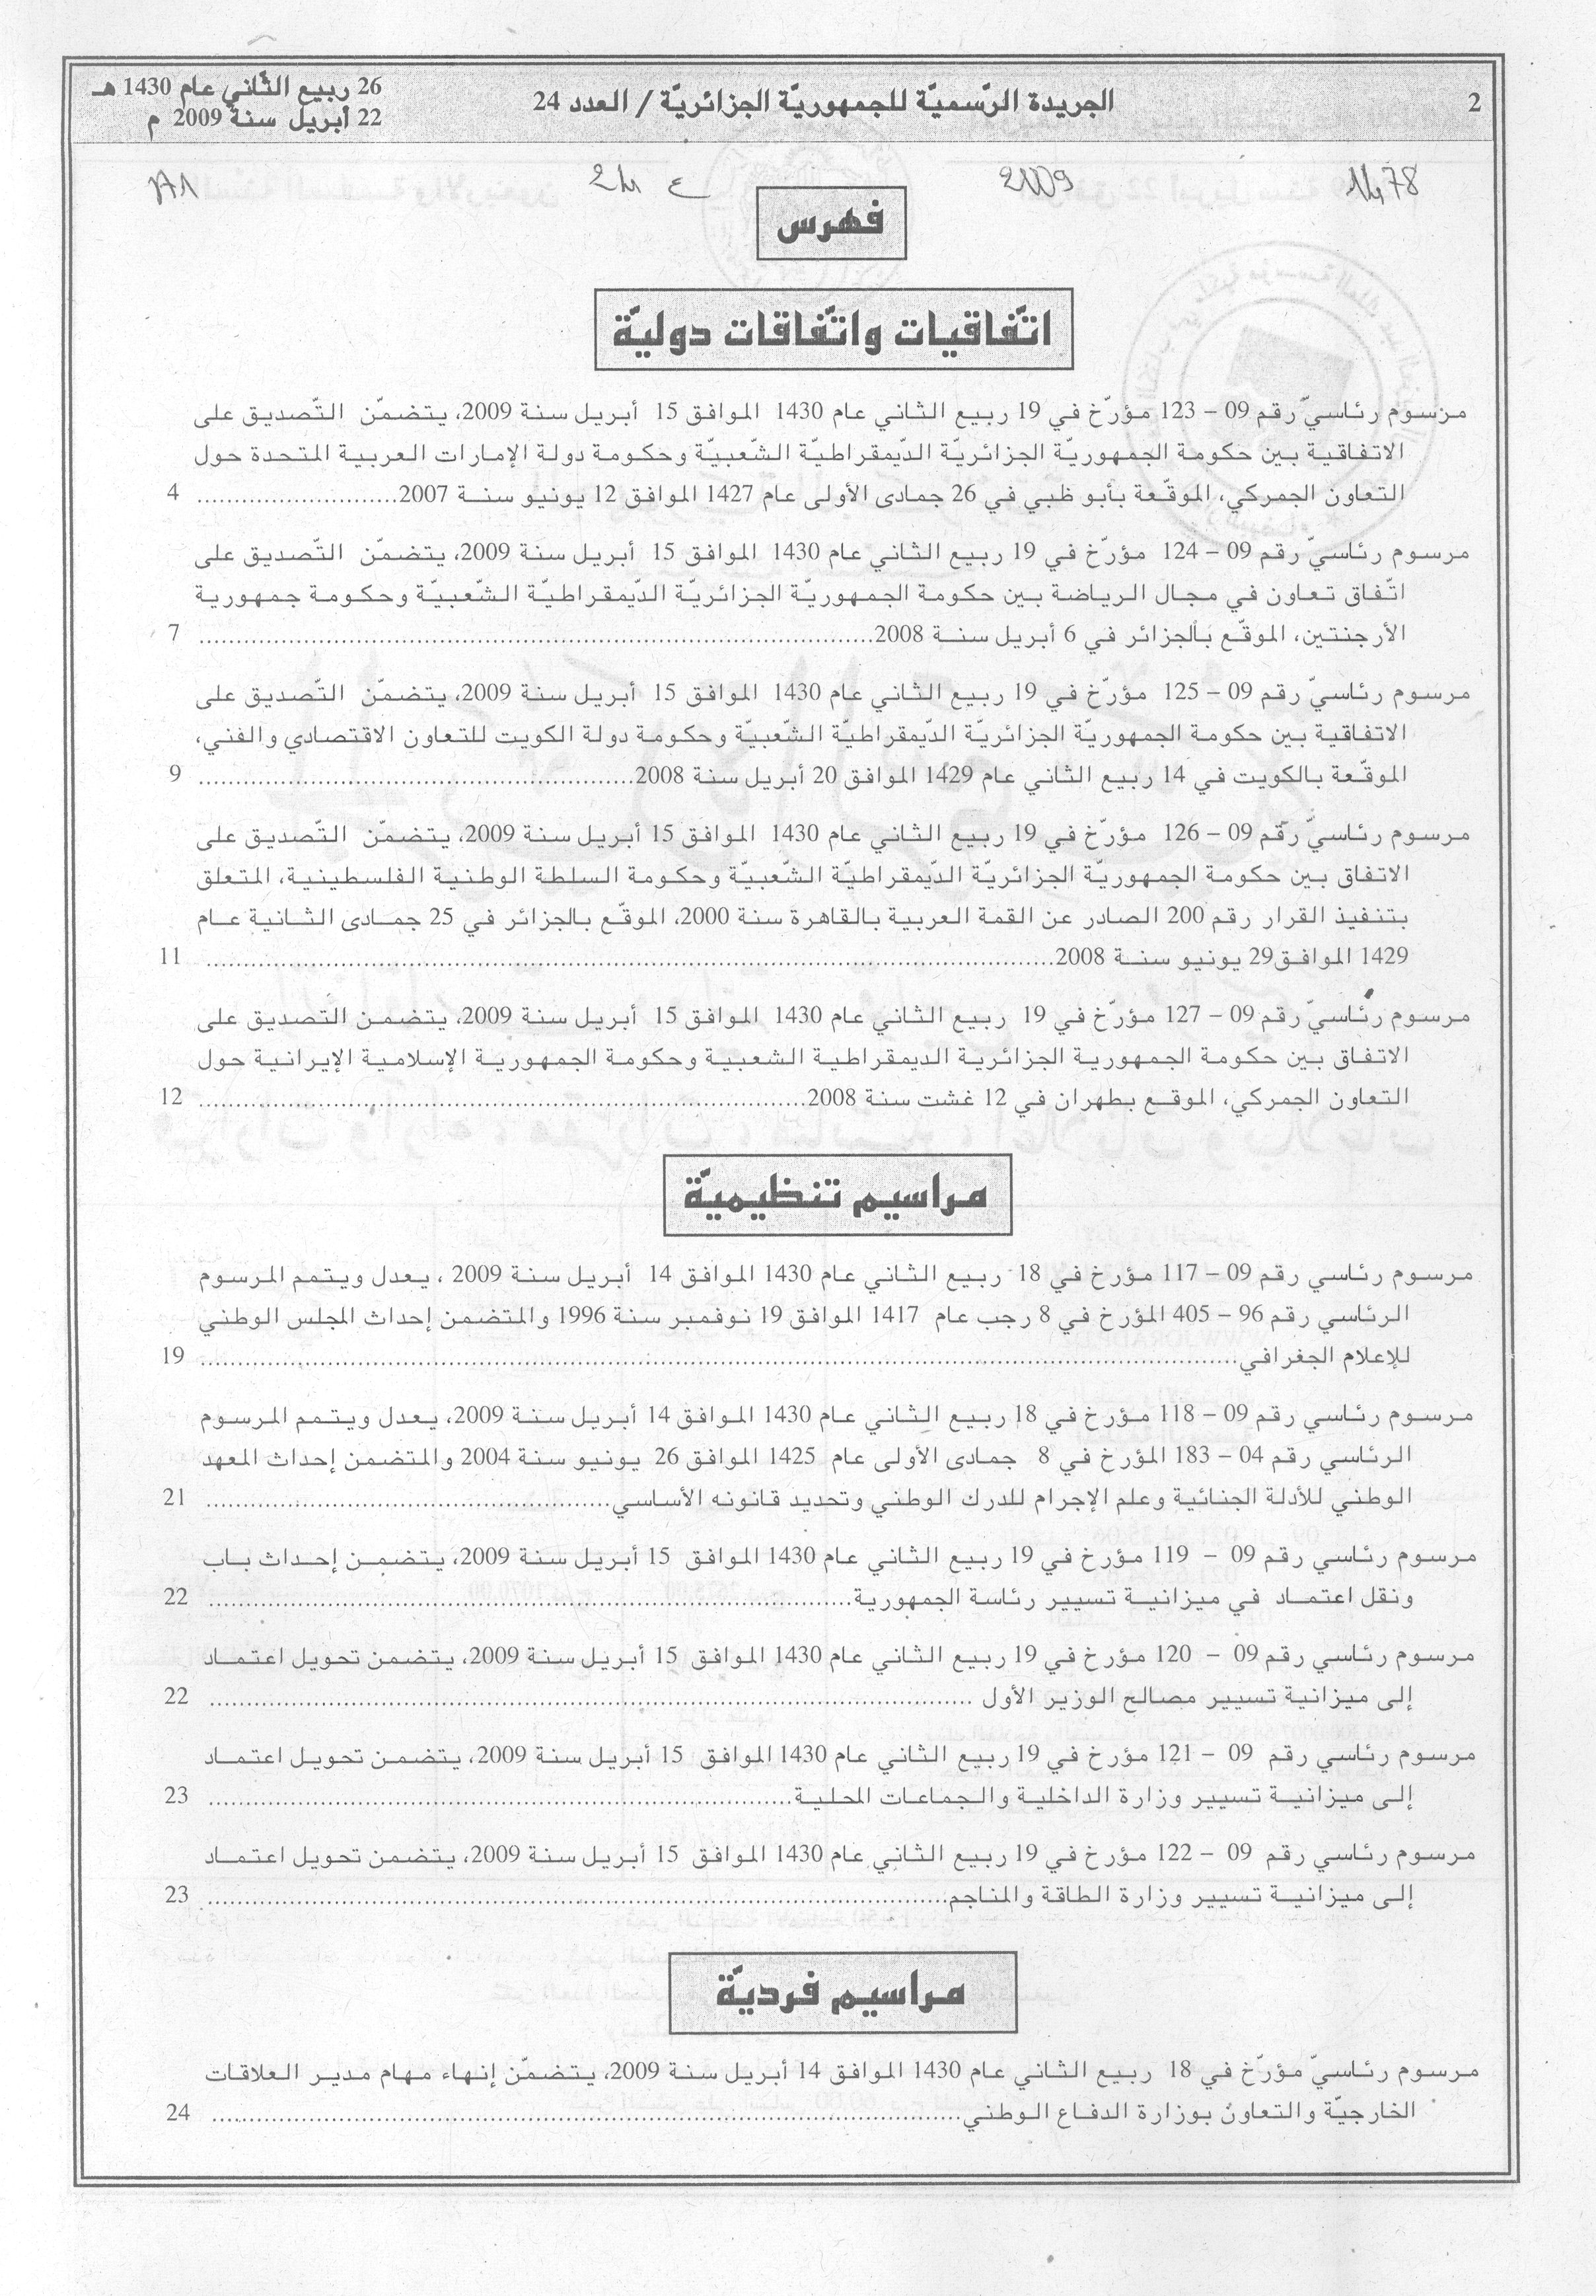 2
الجريدة الرّسميّة للجمهوريّة الجزائريّة / العدد 24
26 ربيع الثّاني عام 1430 هـ
22 أبريل سنة 2009 م
1478 2009 ع 24
فهرس
اتّفاقيات واتّفاقات دوليّة
مرسوم رئاسيّ رقم 09 – 123 مؤرّخ في 19 ربيع الثاني عام 1430 الموافق 15 أبريل سنة 2009، يتضمّن التّصديق على
الاتفاقية بين حكومة الجمهوريّة الجزائريّة الدّيمقراطيّة الشّعبيّة وحكومة دولة الإمارات العربية المتحدة حول
التعاون الجمركي، الموقّعة بأبو ظبي في 26 جمادى الأولى عام 1427 الموافق 12 يونيو سنة 2007 .......................... 4
مرسوم رئاسيّ رقم 09 – 124 مؤرّخ في 19 ربيع الثاني عام 1430 الموافق 15 أبريل سنة 2009، يتضمّن التّصديق على
اتّفاق تعاون في مجال الرياضة بين حكومة الجمهوريّة الجزائريّة الدّيمقراطيّة الشّعبيّة وحكومة جمهورية
الأرجنتين، الموقّع بالجزائر في 6 أبريل سنة 2008 .......................... 7
مرسوم رئاسيّ رقم 09 – 125 مؤرّخ في 19 ربيع الثاني عام 1430 الموافق 15 أبريل سنة 2009، يتضمّن التّصديق على
الاتفاقية بين حكومة الجمهوريّة الجزائريّة الدّيمقراطيّة الشّعبيّة وحكومة دولة الكويت للتعاون الاقتصادي والفني،
الموقّعة بالكويت في 14 ربيع الثاني عام 1429 الموافق 20 أبريل سنة 2008 .......................... 9
مرسوم رئاسيّ رقم 09 – 126 مؤرّخ في 19 ربيع الثاني عام 1430 الموافق 15 أبريل سنة 2009، يتضمّن التّصديق على
الاتفاق بين حكومة الجمهوريّة الجزائريّة الدّيمقراطيّة الشّعبيّة وحكومة السلطة الوطنية الفلسطينية، المتعلق
بتنفيذ القرار رقم 200 الصادر عن القمة العربية بالقاهرة سنة 2000، الموقّع بالجزائر في 25 جمادى الثانية عام
1429 الموافق 29 يونيو سنة 2008 .......................... 11
مرسوم رئاسيّ رقم 09 – 127 مؤرّخ في 19 ربيع الثاني عام 1430 الموافق 15 أبريل سنة 2009، يتضمن التصديق على
الاتفاق بين حكومة الجمهورية الجزائرية الديمقراطية الشعبية وحكومة الجمهورية الإسلامية الإيرانية حول
التعاون الجمركي، الموقع بطهران في 12 غشت سنة 2008 .......................... 12
مراسيم تنظيميّة
مرسوم رئاسي رقم 09 – 117 مؤرخ في 18 ربيع الثاني عام 1430 الموافق 14 أبريل سنة 2009 ، يعدل ويتمم المرسوم
الرئاسي رقم 96 – 405 المؤرخ في 8 رجب عام 1417 الموافق 19 نوفمبر سنة 1996 والمتضمن إحداث المجلس الوطني
للإعلام الجغرافي .......................... 19
مرسوم رئاسي رقم 09 – 118 مؤرخ في 18 ربيع الثاني عام 1430 الموافق 14 أبريل سنة 2009، يعدل ويتمم المرسوم
الرئاسي رقم 04 – 183 المؤرخ في 8 جمادى الأولى عام 1425 الموافق 26 يونيو سنة 2004 والمتضمن إحداث المعهد
الوطني للأدلة الجنائية وعلم الإجرام للدرك الوطني وتحديد قانونه الأساسي .......................... 21
مرسوم رئاسي رقم 09 – 119 مؤرخ في 19 ربيع الثاني عام 1430 الموافق 15 أبريل سنة 2009، يتضمن إحداث باب
ونقل اعتماد في ميزانية تسيير رئاسة الجمهورية .......................... 22
مرسوم رئاسي رقم 09 – 120 مؤرخ في 19 ربيع الثاني عام 1430 الموافق 15 أبريل سنة 2009، يتضمن تحويل اعتماد
إلى ميزانية تسيير مصالح الوزير الأول .......................... 22
مرسوم رئاسي رقم 09 – 121 مؤرخ في 19 ربيع الثاني عام 1430 الموافق 15 أبريل سنة 2009، يتضمن تحويل اعتماد
إلى ميزانية تسيير وزارة الداخلية والجماعات المحلية .......................... 23
مرسوم رئاسي رقم 09 – 122 مؤرخ في 19 ربيع الثاني عام 1430 الموافق 15 أبريل سنة 2009، يتضمن تحويل اعتماد
إلى ميزانية تسيير وزارة الطاقة والمناجم .......................... 23
مراسيم فرديّة
مرسوم رئاسيّ مؤرّخ في 18 ربيع الثاني عام 1430 الموافق 14 أبريل سنة 2009، يتضمّن إنهاء مهام مدير العلاقات
الخارجيّة والتعاون بوزارة الدفاع الوطني .......................... 24